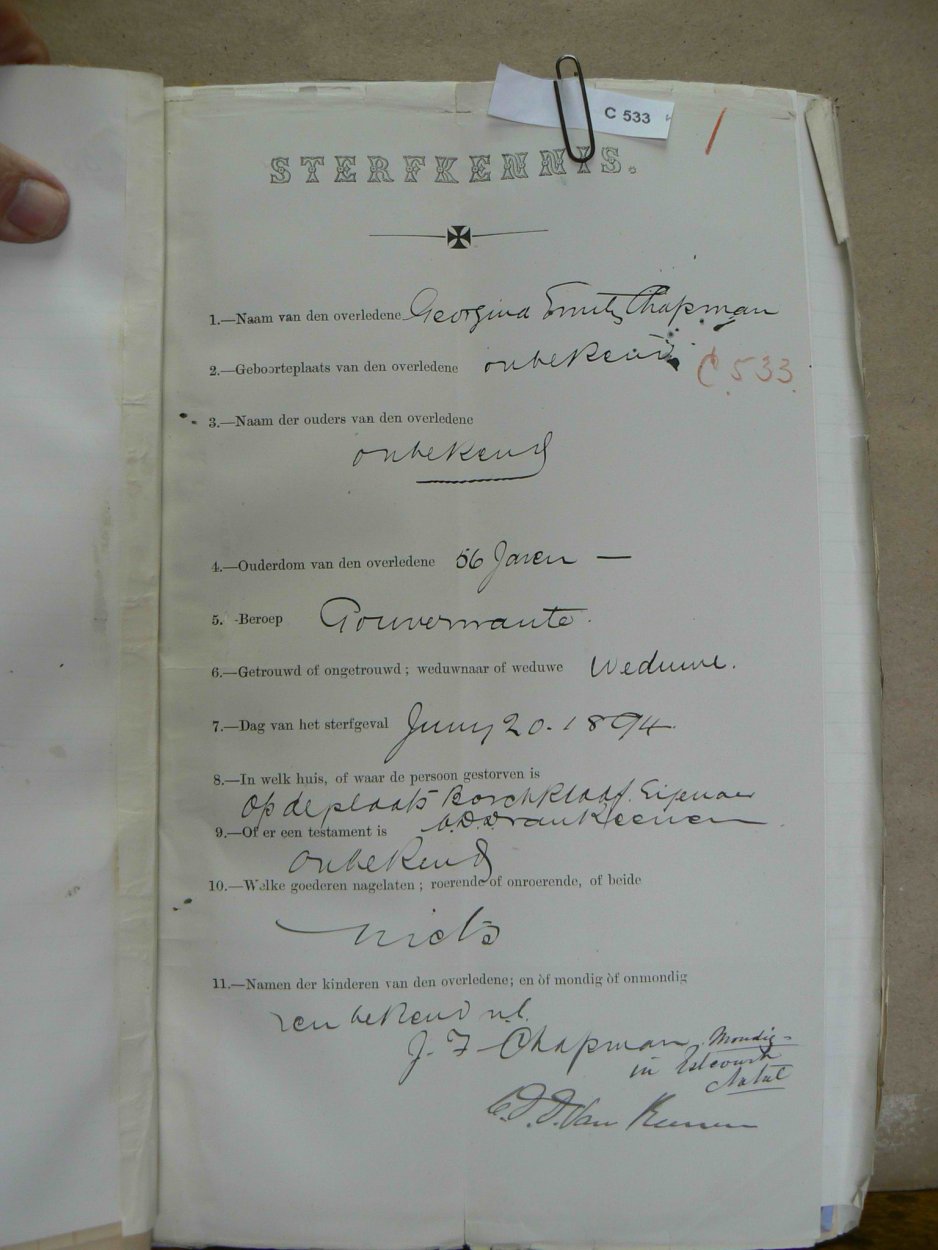 C 533
STERFKENNIS.
1.—Naam van den overledene Georgina Smith Chapman
2.—Geboorteplaats van den overledene onbekend
C 533
3.—Naam der ouders van den overledene
onbekend
4.—Ouderdom van den overledene 56 Jaren —
5.-Beroep Gouvernante.
6.—Getrouwd of ongetrouwd; weduwnaar of weduwe Weduwe.
7.—Dag van het sterfgeval Juny 20. 1894.
8.—In welk huis, of waar de persoon gestorven is
Op de plaats Boschkloof. Eigenaar
9.—Of er een testament is van Keenen
onbekend
10.—Welke goederen nagelaten; roerende of onroerende, of beide
niets
11.—Namen der kinderen van den overledene; en òf mondig òf onmondig
een bekend nl.
J. F. Chapman Mondig
in Estcourt
Natal
Van